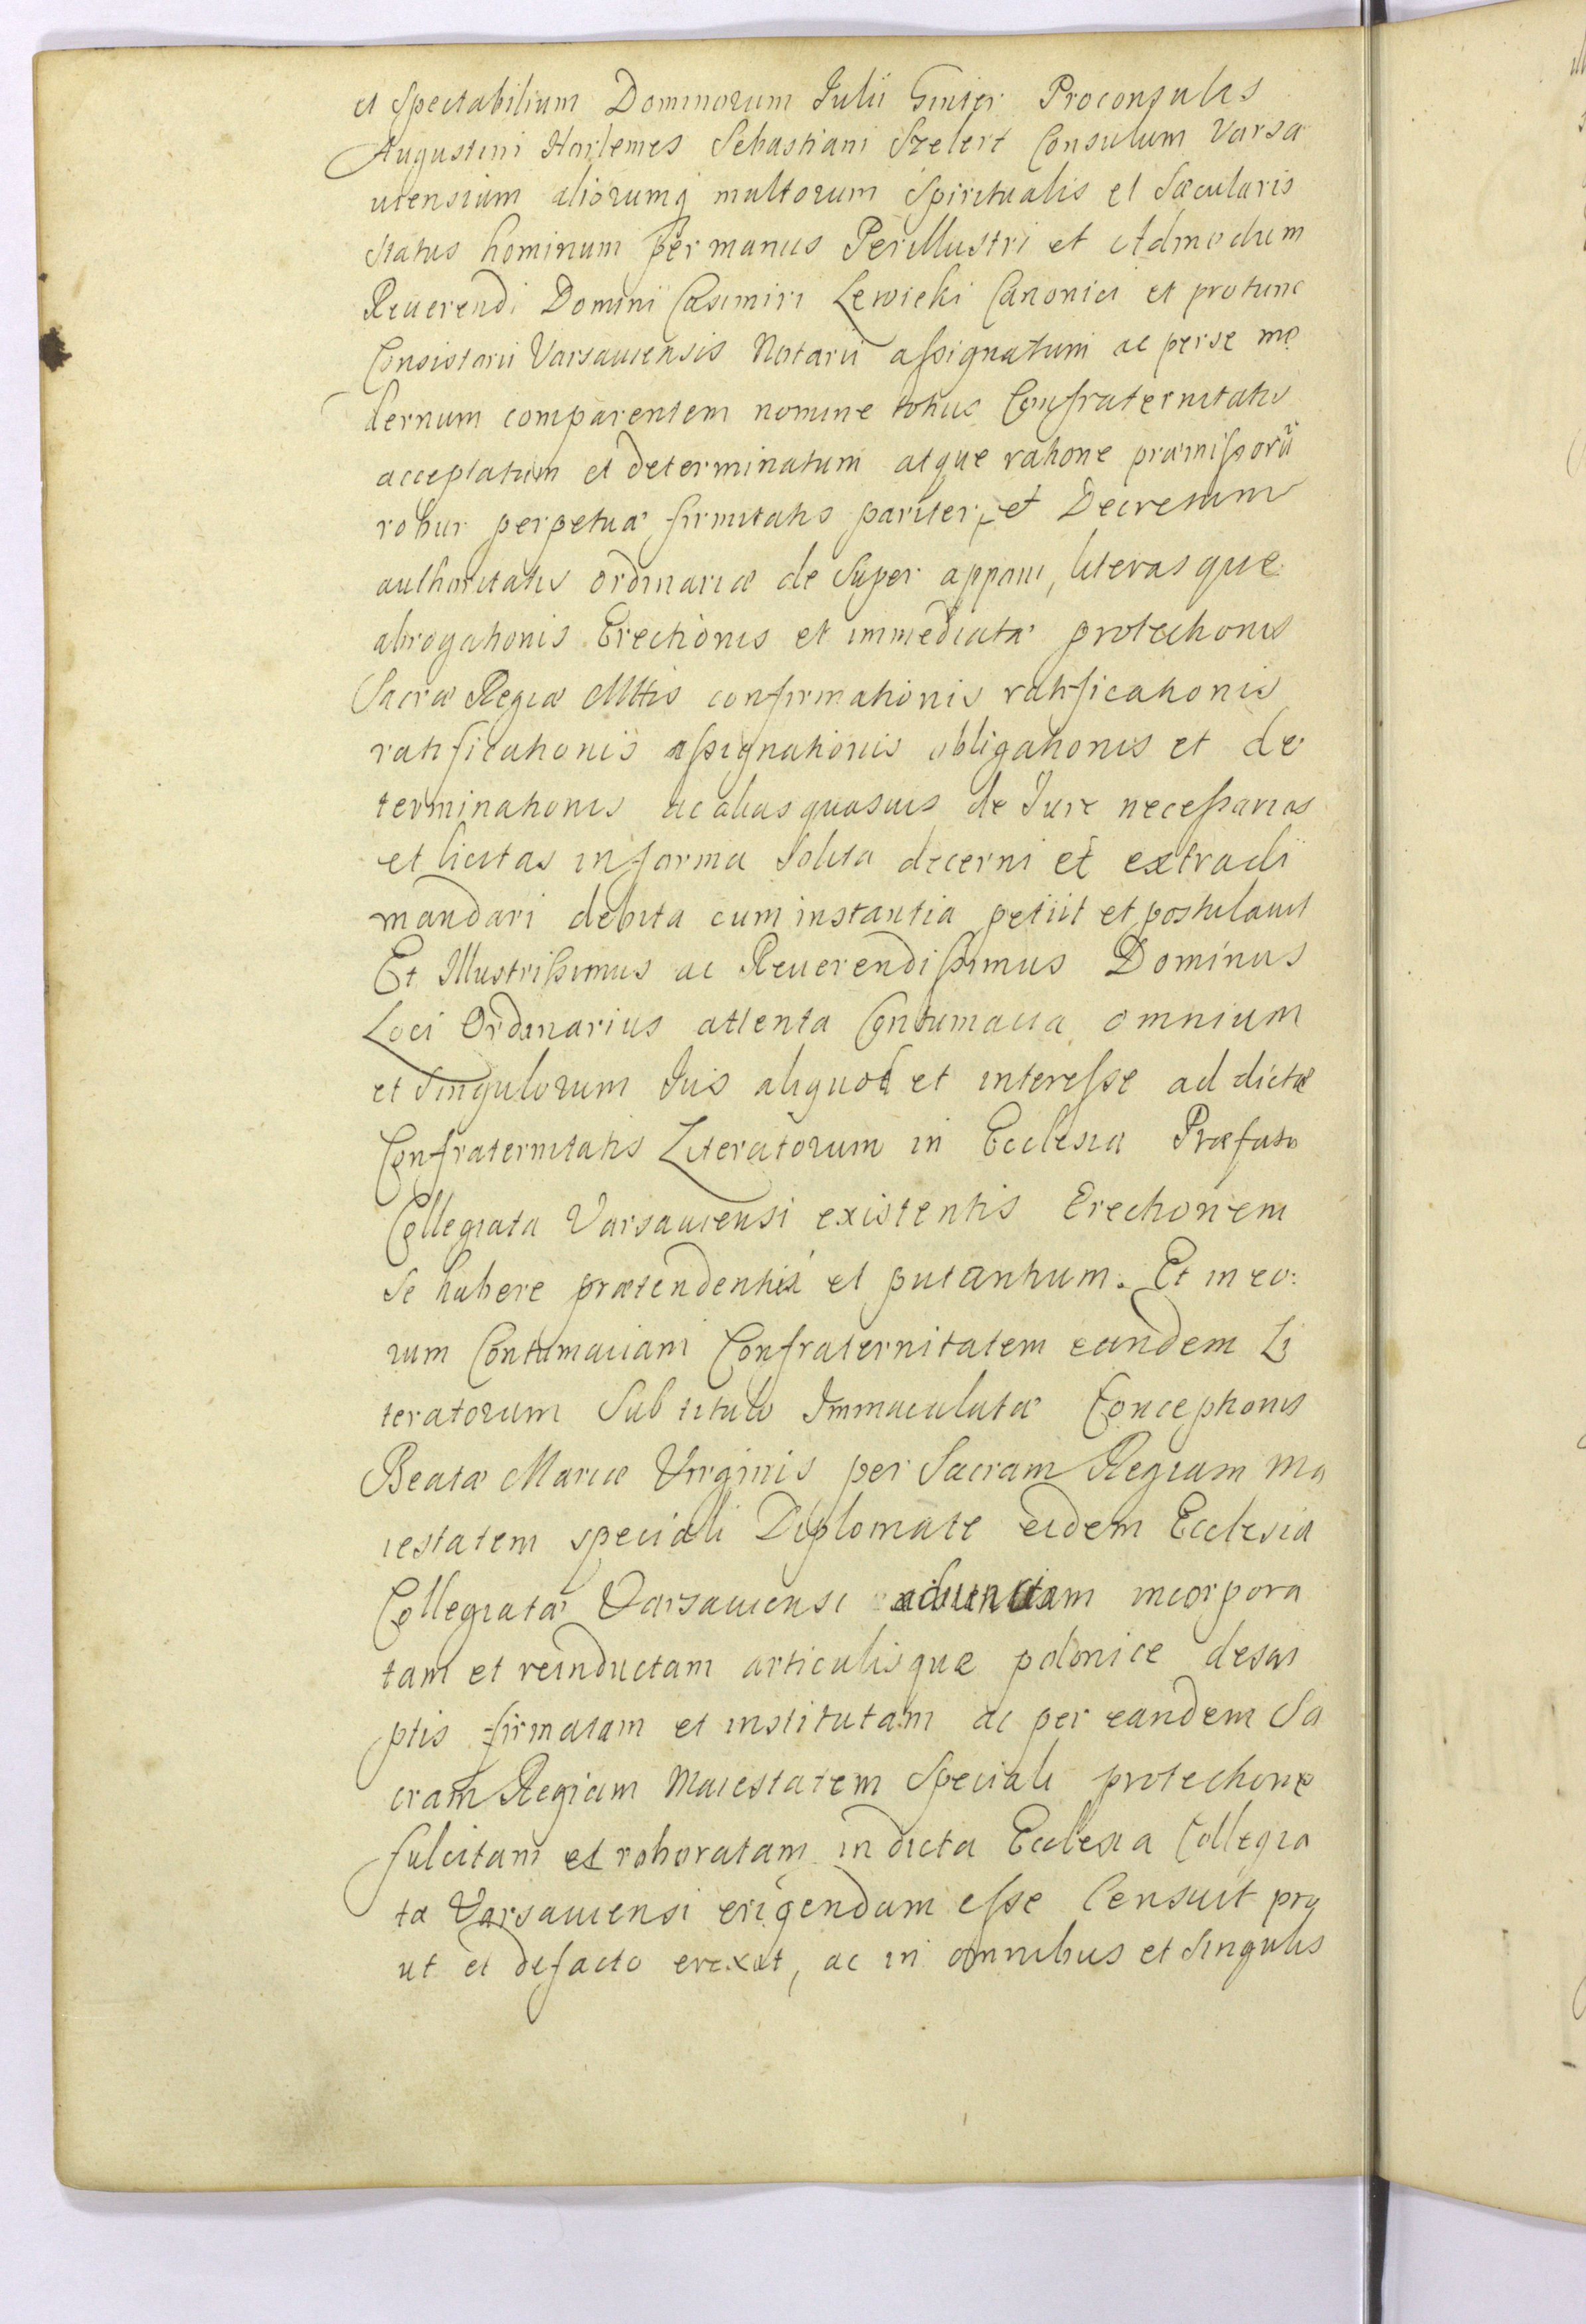 et Spectabilium Dominorum Iulii Ginter Proconsulis
Augustini Harlemes Sebastiani Szelert Consulum Varsa
uiensium aliorumq multorum Spiritualis et Sæcularis
status hominum per manus Perillustri et Admodum
Reuerendi Domini Casimiri Lewicki Canonici et protunc
Consistorii Varsauiensis Notarii assignatum ac perse mo
dernum comparentem nomine totius Confraternitatis
acceptatum et determinatum atque ratione præmissorũ
robur perpetuæ firmitatis pariter et Decretum
authoritatis ordinariæ de super apponi, literasque
abrogationis Erectionis et immediatæ protectionis
Sacræ Regiæ Mttis confirmationis ratificationis
ratificationis assignationis obligationis et de
terminationis ac alias quasuis de Iure necessarias
et licitas informa solita decerni et extradi
mandari debita cum instantia petiit et postulauit
Et Illustrissimus ac Reuerendissimus Dominus
Loci Ordinarius attenta Contumacia omnium
et singulorum Ius aliquod et interesse ad dictæ
Confraternitatis Literatorum in Ecclesia Præfata
Collegiata Varsauiensi existentis Erectionem
se habere prætendentis et putantium. Et in eo:
rum Contumaciam Confraternitatem eandem Li
teratorum Sub titulo Immaculatæ Conceptionis
Beatæ Mariæ Virginis per Sacram Regiam Ma
iestatem speciali Diplomate eidem Ecclesia
Collegiatæ Varsauiensi adunitam incorpora
tam et reinductam articulisque polonice descri
ptis firmatam et institutam ac per eandem Sa
cram Regiam Maiestatem Speciali protectione
fulcitam et roboratam in dicta Ecclesia Collegia
ta Varsauiensi erigendam esse Censuit pro
ut et defacto erexit, ac in omnibus et singulis